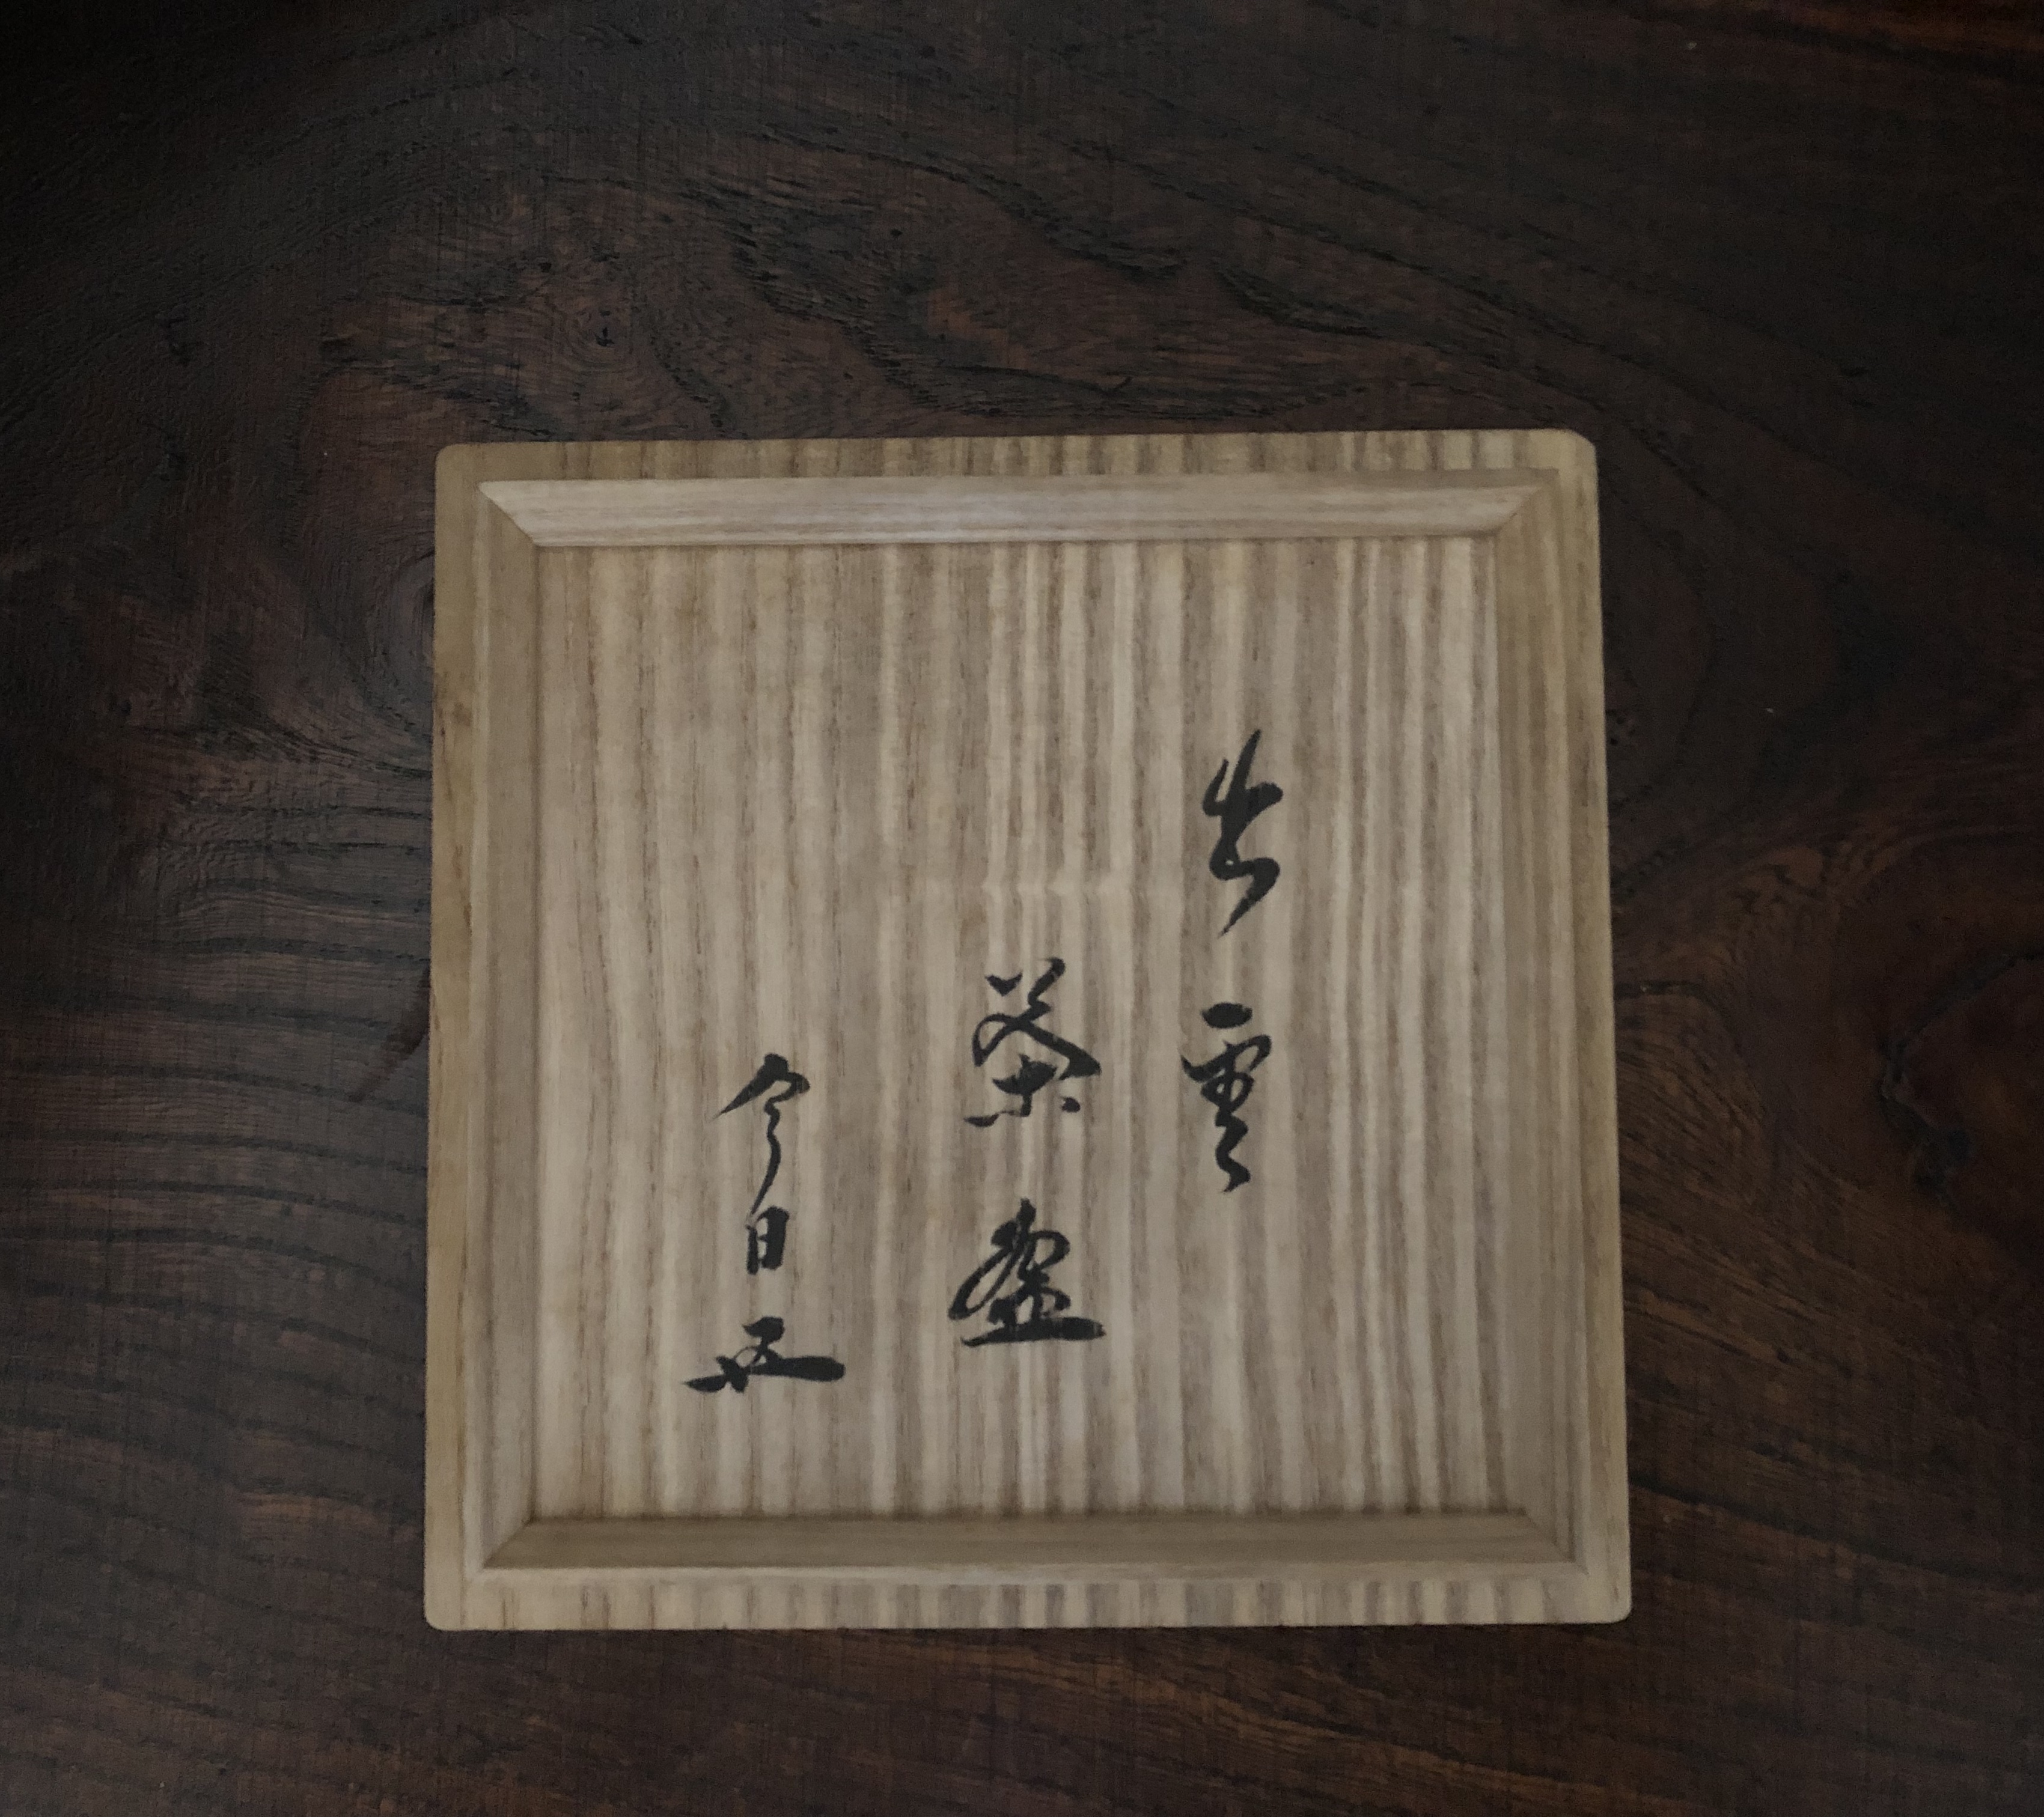 出雲
茶盌
今日